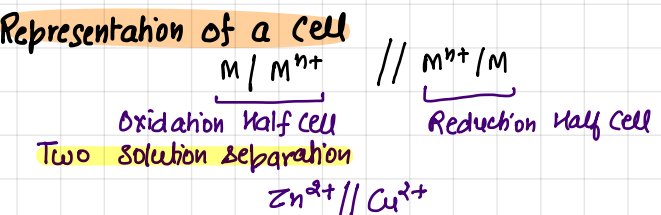 Representation of a cell
M / Mⁿ⁺ // Mⁿ⁺ / M
Oxidation Half cell Reduction Half Cell
Two solution separation
Zn²⁺ // Cu²⁺